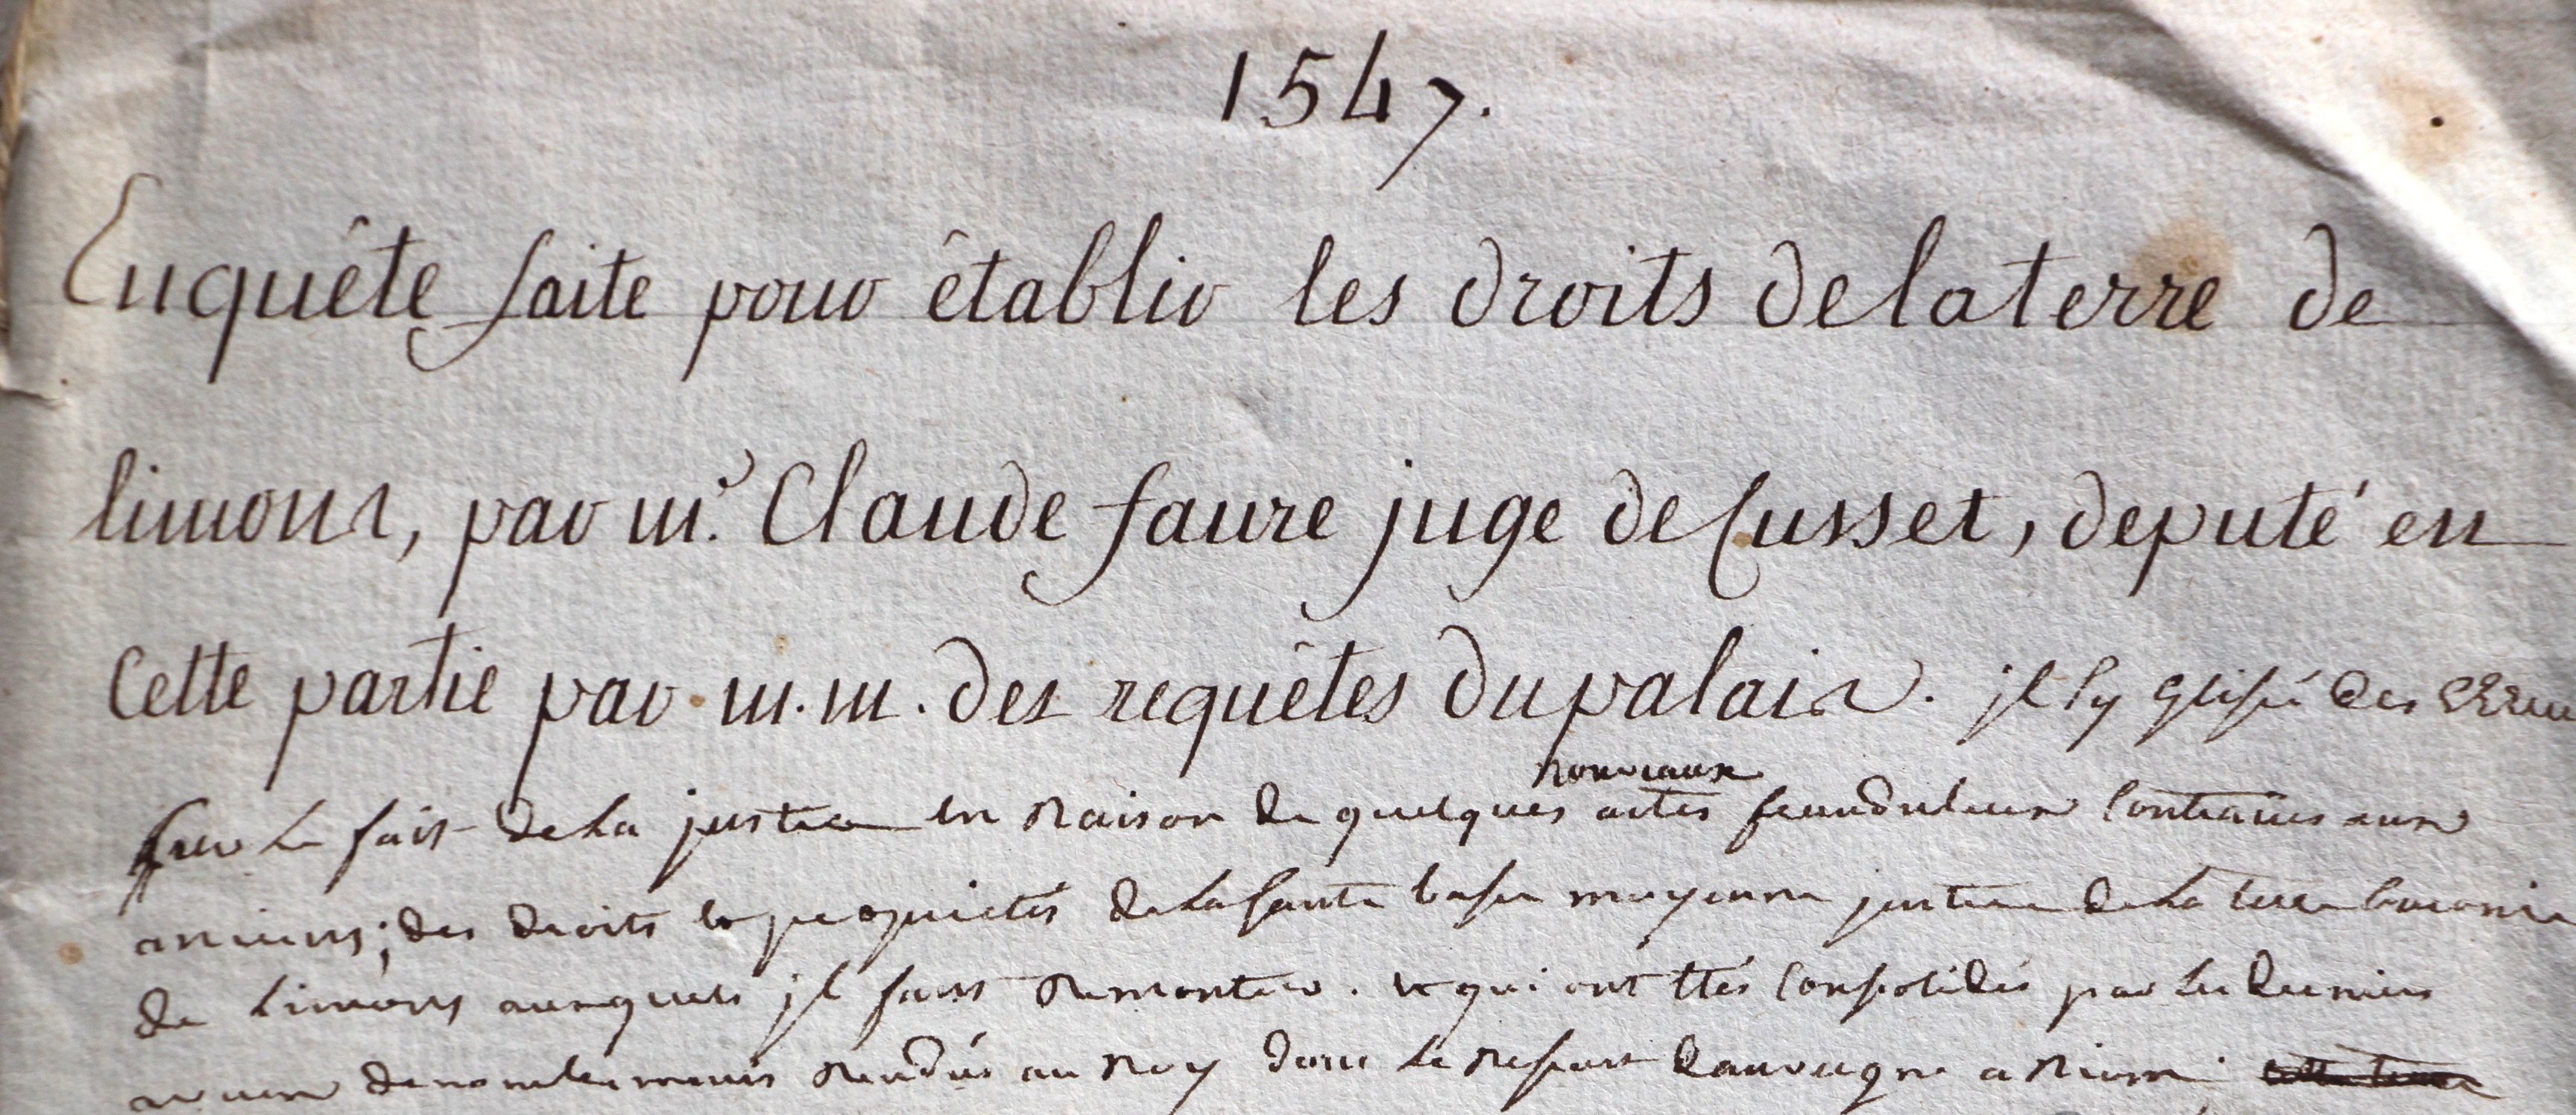 1547.
Enquête faite pour êtablir les droits de la terre de
limons, par m.r Claude faure juge de Cusset, deputé en
Cette partie par m.m. des requêtes du palais. jl sy glissé des
nouveaux
sur le fait de la justice en Raison de quelques actes frauduleux Contraires aux
anciens; des droits & proprietés de la haute basse moyenne justice de la terre baronie
de Limons auxquels jl faut Remonter. & qui ont étés Consolidés par les derniers
denombrements Rendus au Roy dans le Ressort dauvergne a Riom